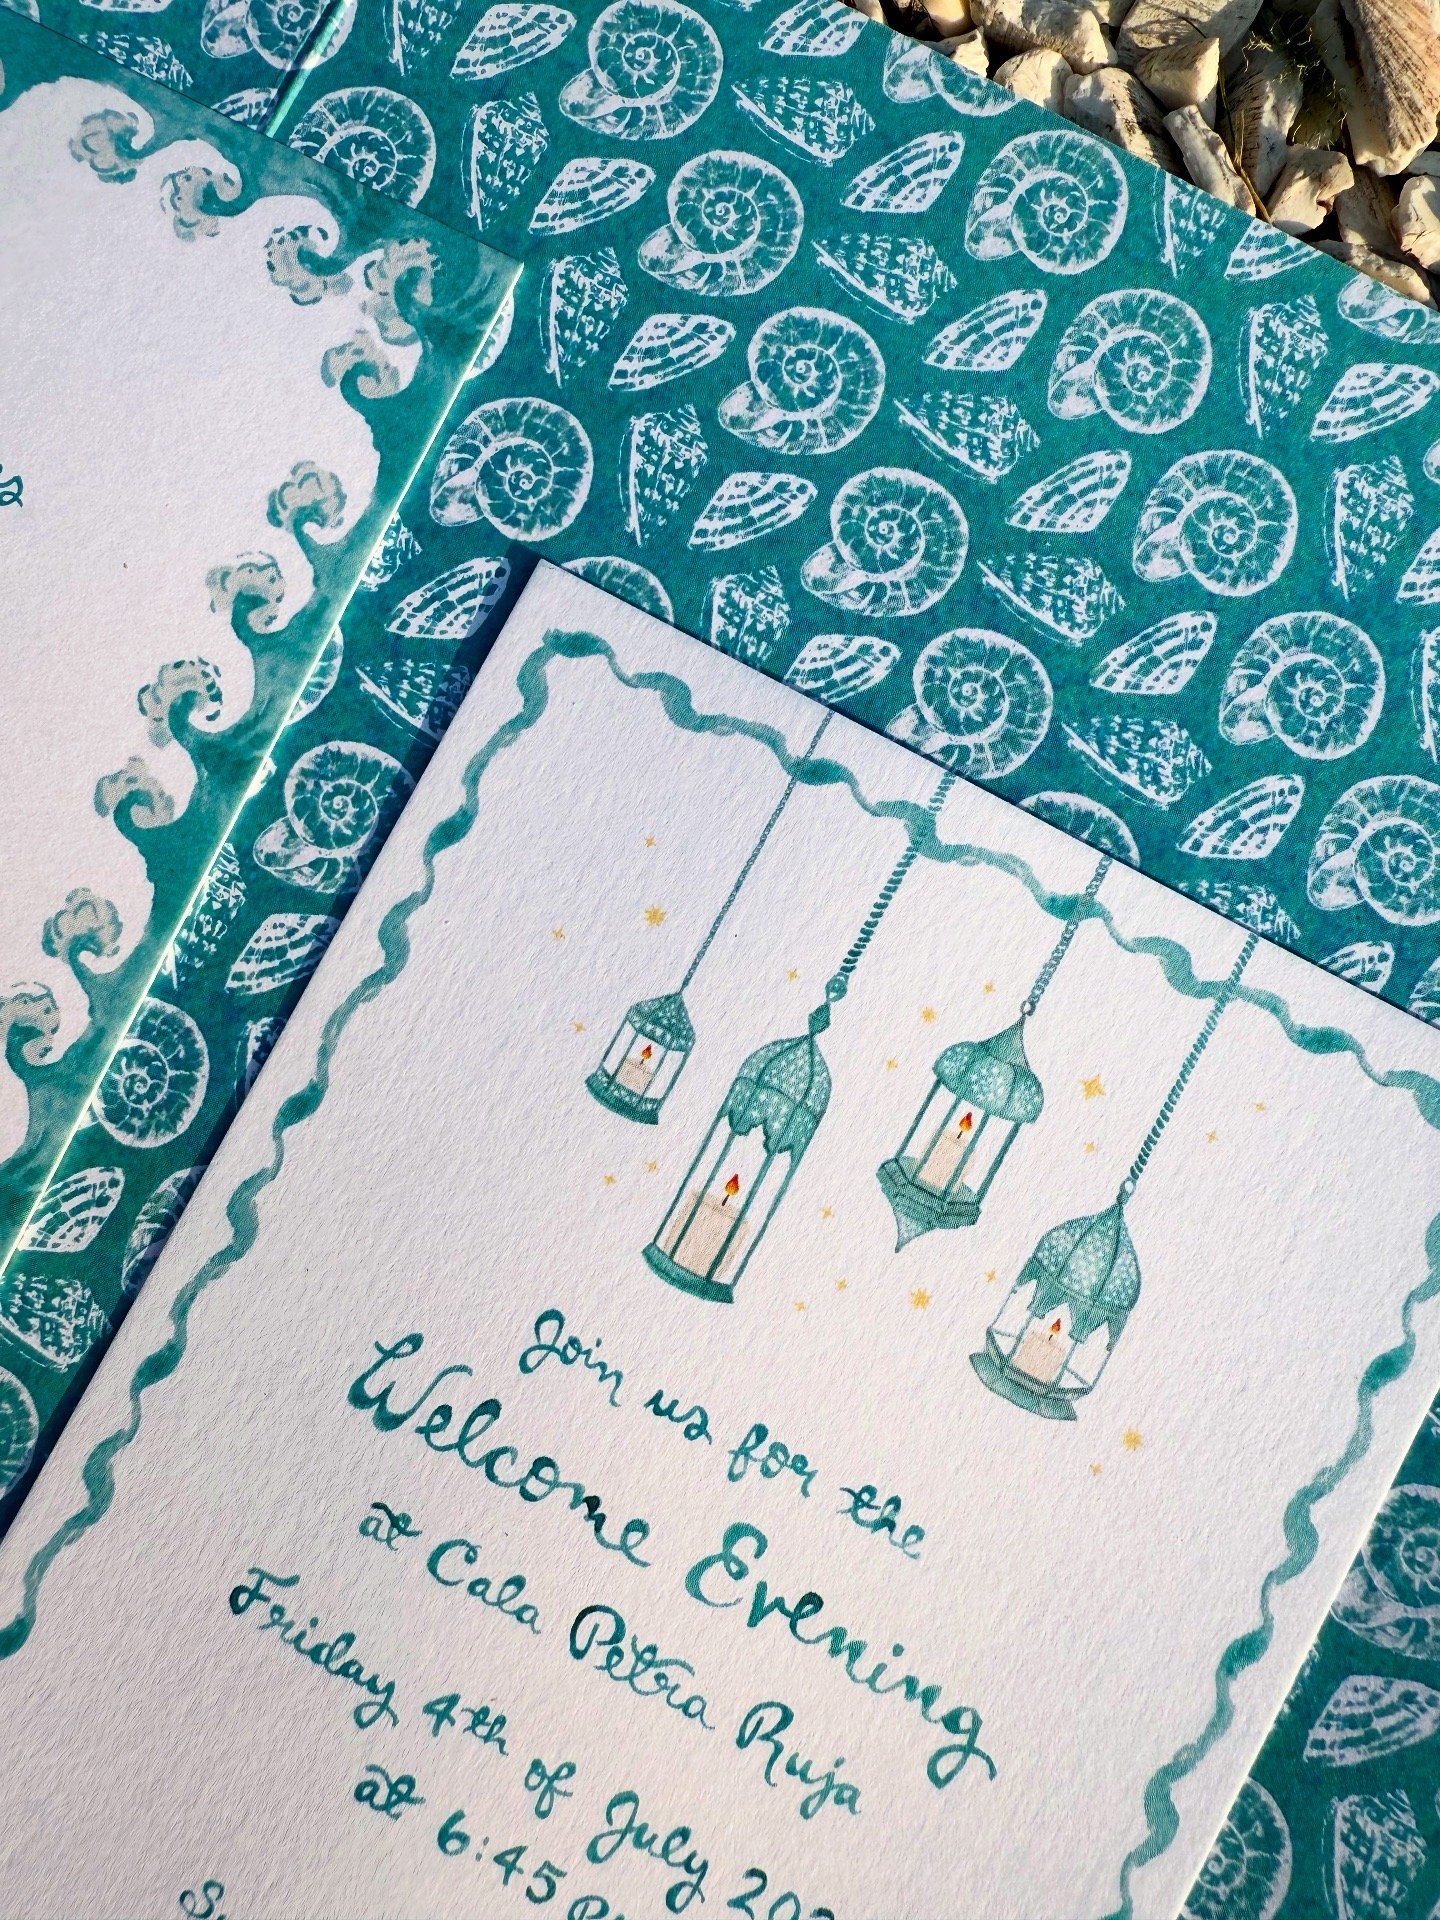 Join us for the
Welcome Evening
at Cala Petra Ruja
Friday 4th of July
at 6:45